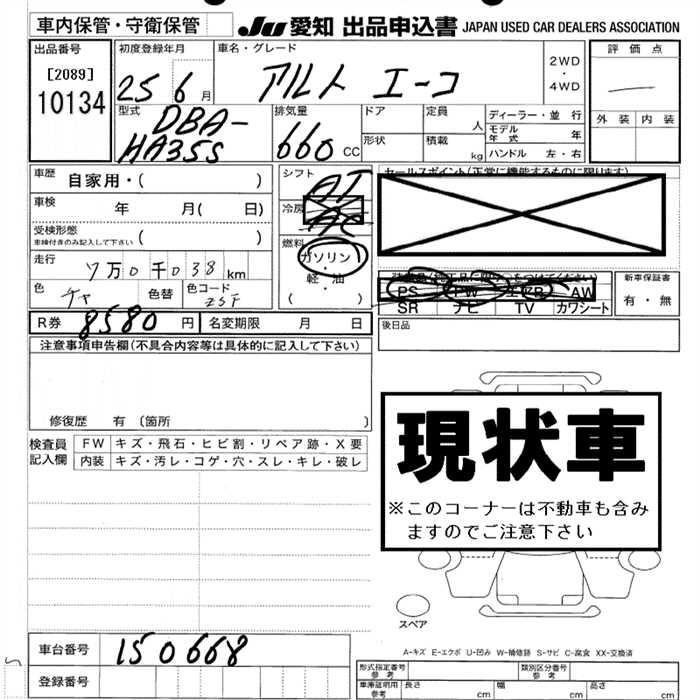 車内保管・守衛保管 JU 愛知 出品申込書 JAPAN USED CAR DEALERS ASSOCIATION
出品番号 初度登録年月 車名・グレード 2WD・4WD 評価点
[2089] 25 6月 アルト エーコ
10134
外装 内装
型式 排気量 ドア 定員 人 ディーラー・並行
DBA- 660 CC モデル年式 年
HA35S 形状 積載 kg ハンドル 左・右
車歴 自家用・( ) シフト AT セールスポイント(正常に機能するものに限ります)
車検 年 月( 日) 冷房 AC
受検形態 ( )
車検付きのみ記入して下さい
燃料 ガソリン・軽・油 ( )
走行 7万0千038km
色 チャ 色替 色コード ZSF
PS PW AW 新車保証書
SR ナビ TV カワシート 有・無
R券 8580円 名変期限 月 日 後日品
注意事項申告欄(不具合内容等は具体的に記入して下さい)
修復歴 有 〔箇所 〕
現状車
※このコーナーは不動車も含み
ますのでご注意下さい
検査員記入欄 FW キズ・飛石・ヒビ割・リペア跡・X要
内装 キズ・汚レ・コゲ・穴・スレ・キレ・破レ
スペア
A-キズ E-エクボ U-凹み W-補修跡 S-サビ C-腐食 XX-交換済
車台番号 150668
登録番号
形式指定番号 参考 類別区分番号 参考
車庫証明用 参考 長さ cm 幅 cm 高さ cm